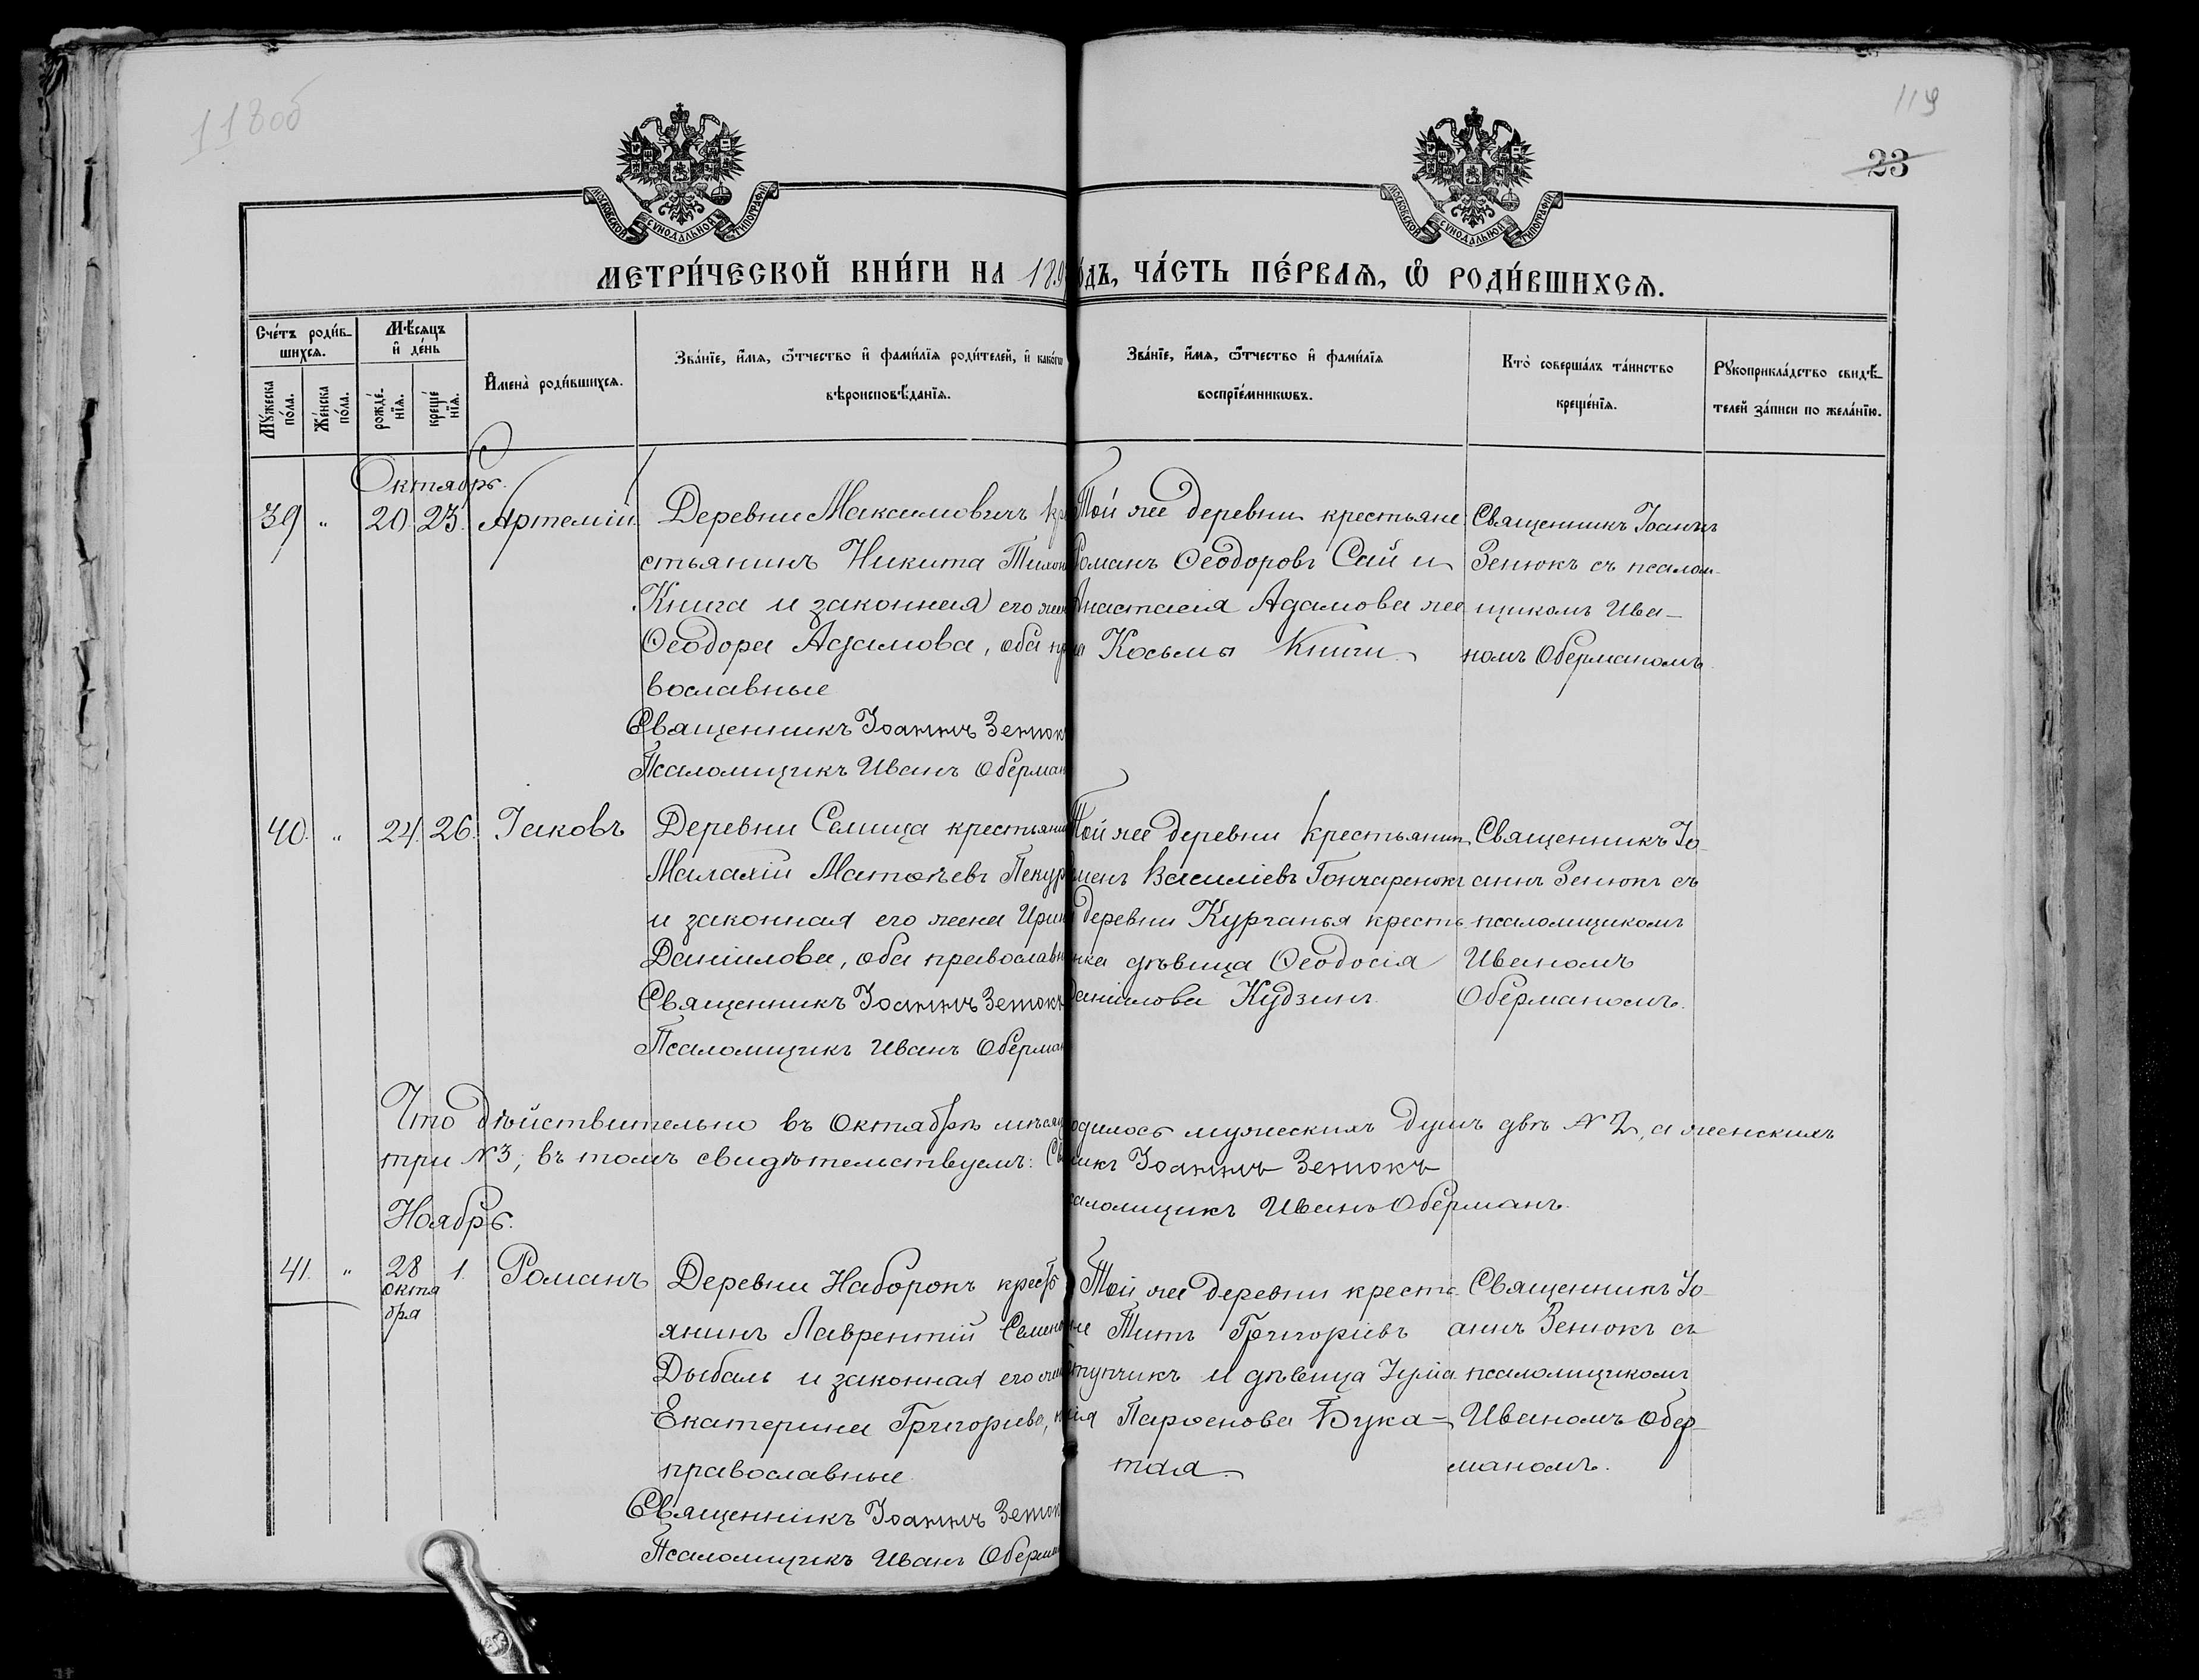 118об
119
23
МОСКОВСКОЙ СѴНОДАЛЬНОЙ ТИПОГРАФІИ
МОСКОВСКОЙ СѴНОДАЛЬНОЙ ТИПОГРАФІИ
МЕТРИ́ЧЕСКОЙ КНИ́ГИ НА 189
ОДЪ, ЧА́СТЬ ПЕ́РВАЯ, Ѽ РОДИ́ВШИХСЯ.
Сче́тъ роди́в-
шихся.
Мѣ́сяцъ
и҆ де́нь
Му́жеска
по́ла.
Же́нска
по́ла.
рожде́-
нїѧ.
креще́
нїѧ.
И҆мена̀ роди́вшихся.
Зва́нїе, и҆́мя, ѿ́тчество и҆ фами́лїя роди́телей, и҆ како́гѡ
вѣроисповѣ́данїя.
Зва́нїе, и҆́мя, ѿ́тчество и҆ фами́лїя
воспрїе́мникѡвъ.
Кто̀ соверша́лъ та́инство
креще́нїя.
Рꙋкоприкла́дство свидѣ́-
телей за́писи по жела́нїю.
Октябрь.
39 " 20. 23. Артемій
Деревни Максимовичъ кре
стьянинъ Никита Тихон
Книга и законная его жен
Ѳеодора Адамова, оба пр
вославные
Священникъ Іоаннъ Зенюк
Псаломщикъ Иванъ Оберман
Той же деревни крестьяне
Романъ Ѳеодоровъ Сай и
Анастасія Адамова же
на Косьмы Книги.
Священникъ Іоаннъ
Зенюкъ съ псалом-
щикомъ Ива-
номъ Оберманомъ.
40. " 24. 26. Іаковъ
Деревни Селища крестьянин
Малахій Матѳѣевъ Пекур
и законная его жена Ирин
Даніилова, оба православн
Священникъ Іоаннъ Зенюкъ
Псаломщикъ Иванъ Оберман
Той же деревни крестьянин
Василіевъ Гончаренокъ
деревни Курганья кресть
нка дѣвица Ѳеодосія
Даніилова Кудзинъ.
Священникъ Іо-
аннъ Зенюкъ съ
псаломщикомъ
Иваномъ
Оберманомъ.
Что дѣйствительно въ Октябрѣ мѣсяц
одилось мужескихъ душъ двѣ N 2, а женскихъ
три N 3, въ томъ свидѣтельствуемъ: Св
никъ Іоаннъ Зенюкъ
саломщикъ Иванъ Оберманъ.
Ноябрь.
41. " 28 1. Романъ
Октя
бря
Деревни Наборокъ кресть
янинъ Лаврентій Семено
Дыбаль и законная его жен
Екатерина Григоріева,
православные.
Священникъ Іоаннъ Зенюк
Псаломщикъ Иванъ Оберман
Той же деревни кресть
не Титъ Григоріевъ
тупчикъ и дѣвица Іулiа
нія Парѳенова Бука-
тая.
Священникъ Іо-
аннъ Зенюкъ съ
псаломщикомъ
Иваномъ Обер-
маномъ.